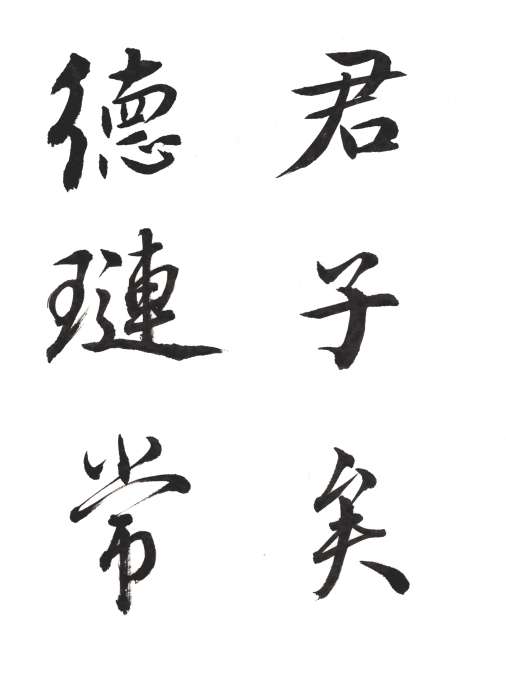 君子矣
德璉常